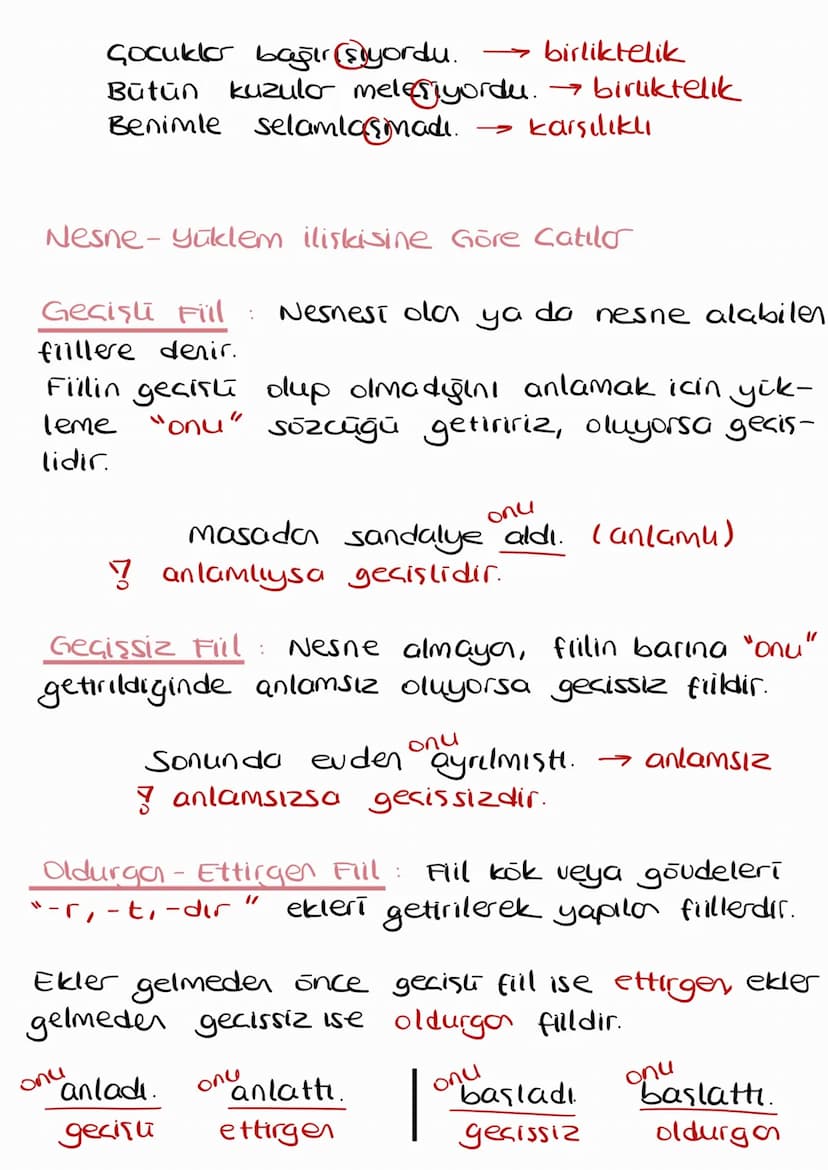 Çocuklar bağırışıyordu. → birliktelik
Bütün kuzular meleşiyordu. → birliktelik
Benimle selamlaşmadı. → karşılıklı
Nesne-Yüklem ilişkisine Göre Çatılar
Geçişli Fiil : Nesnesi olan ya da nesne alabilen
fiillere denir.
Fiilin geçişli olup olmadığını anlamak için yük-
leme "onu" sözcüğü getiririz, oluyorsa geçiş-
lidir.
onu
Masadan sandalye aldı. (anlamlı)
? anlamlıysa geçişlidir.
Geçişsiz Fiil : Nesne almayan, fiilin başına "onu"
getirildiğinde anlamsız oluyorsa geçissiz fiildir.
onu
Sonunda evden ayrılmıştı. → anlamsız
? anlamsızsa geçissizdir.
Oldurgan - Ettirgen Fiil : Fiil kök veya gövdeleri
"-r, -t, -dır" ekleri getirilerek yapılan fiillerdir.
Ekler gelmeden önce geçişli fiil ise ettirgen, ekler
gelmeden geçissiz ise oldurgan fiildir.
onu anladı. onu anlattı. | onu başladı. onu başlattı.
geçişli ettirgen geçissiz oldurgan